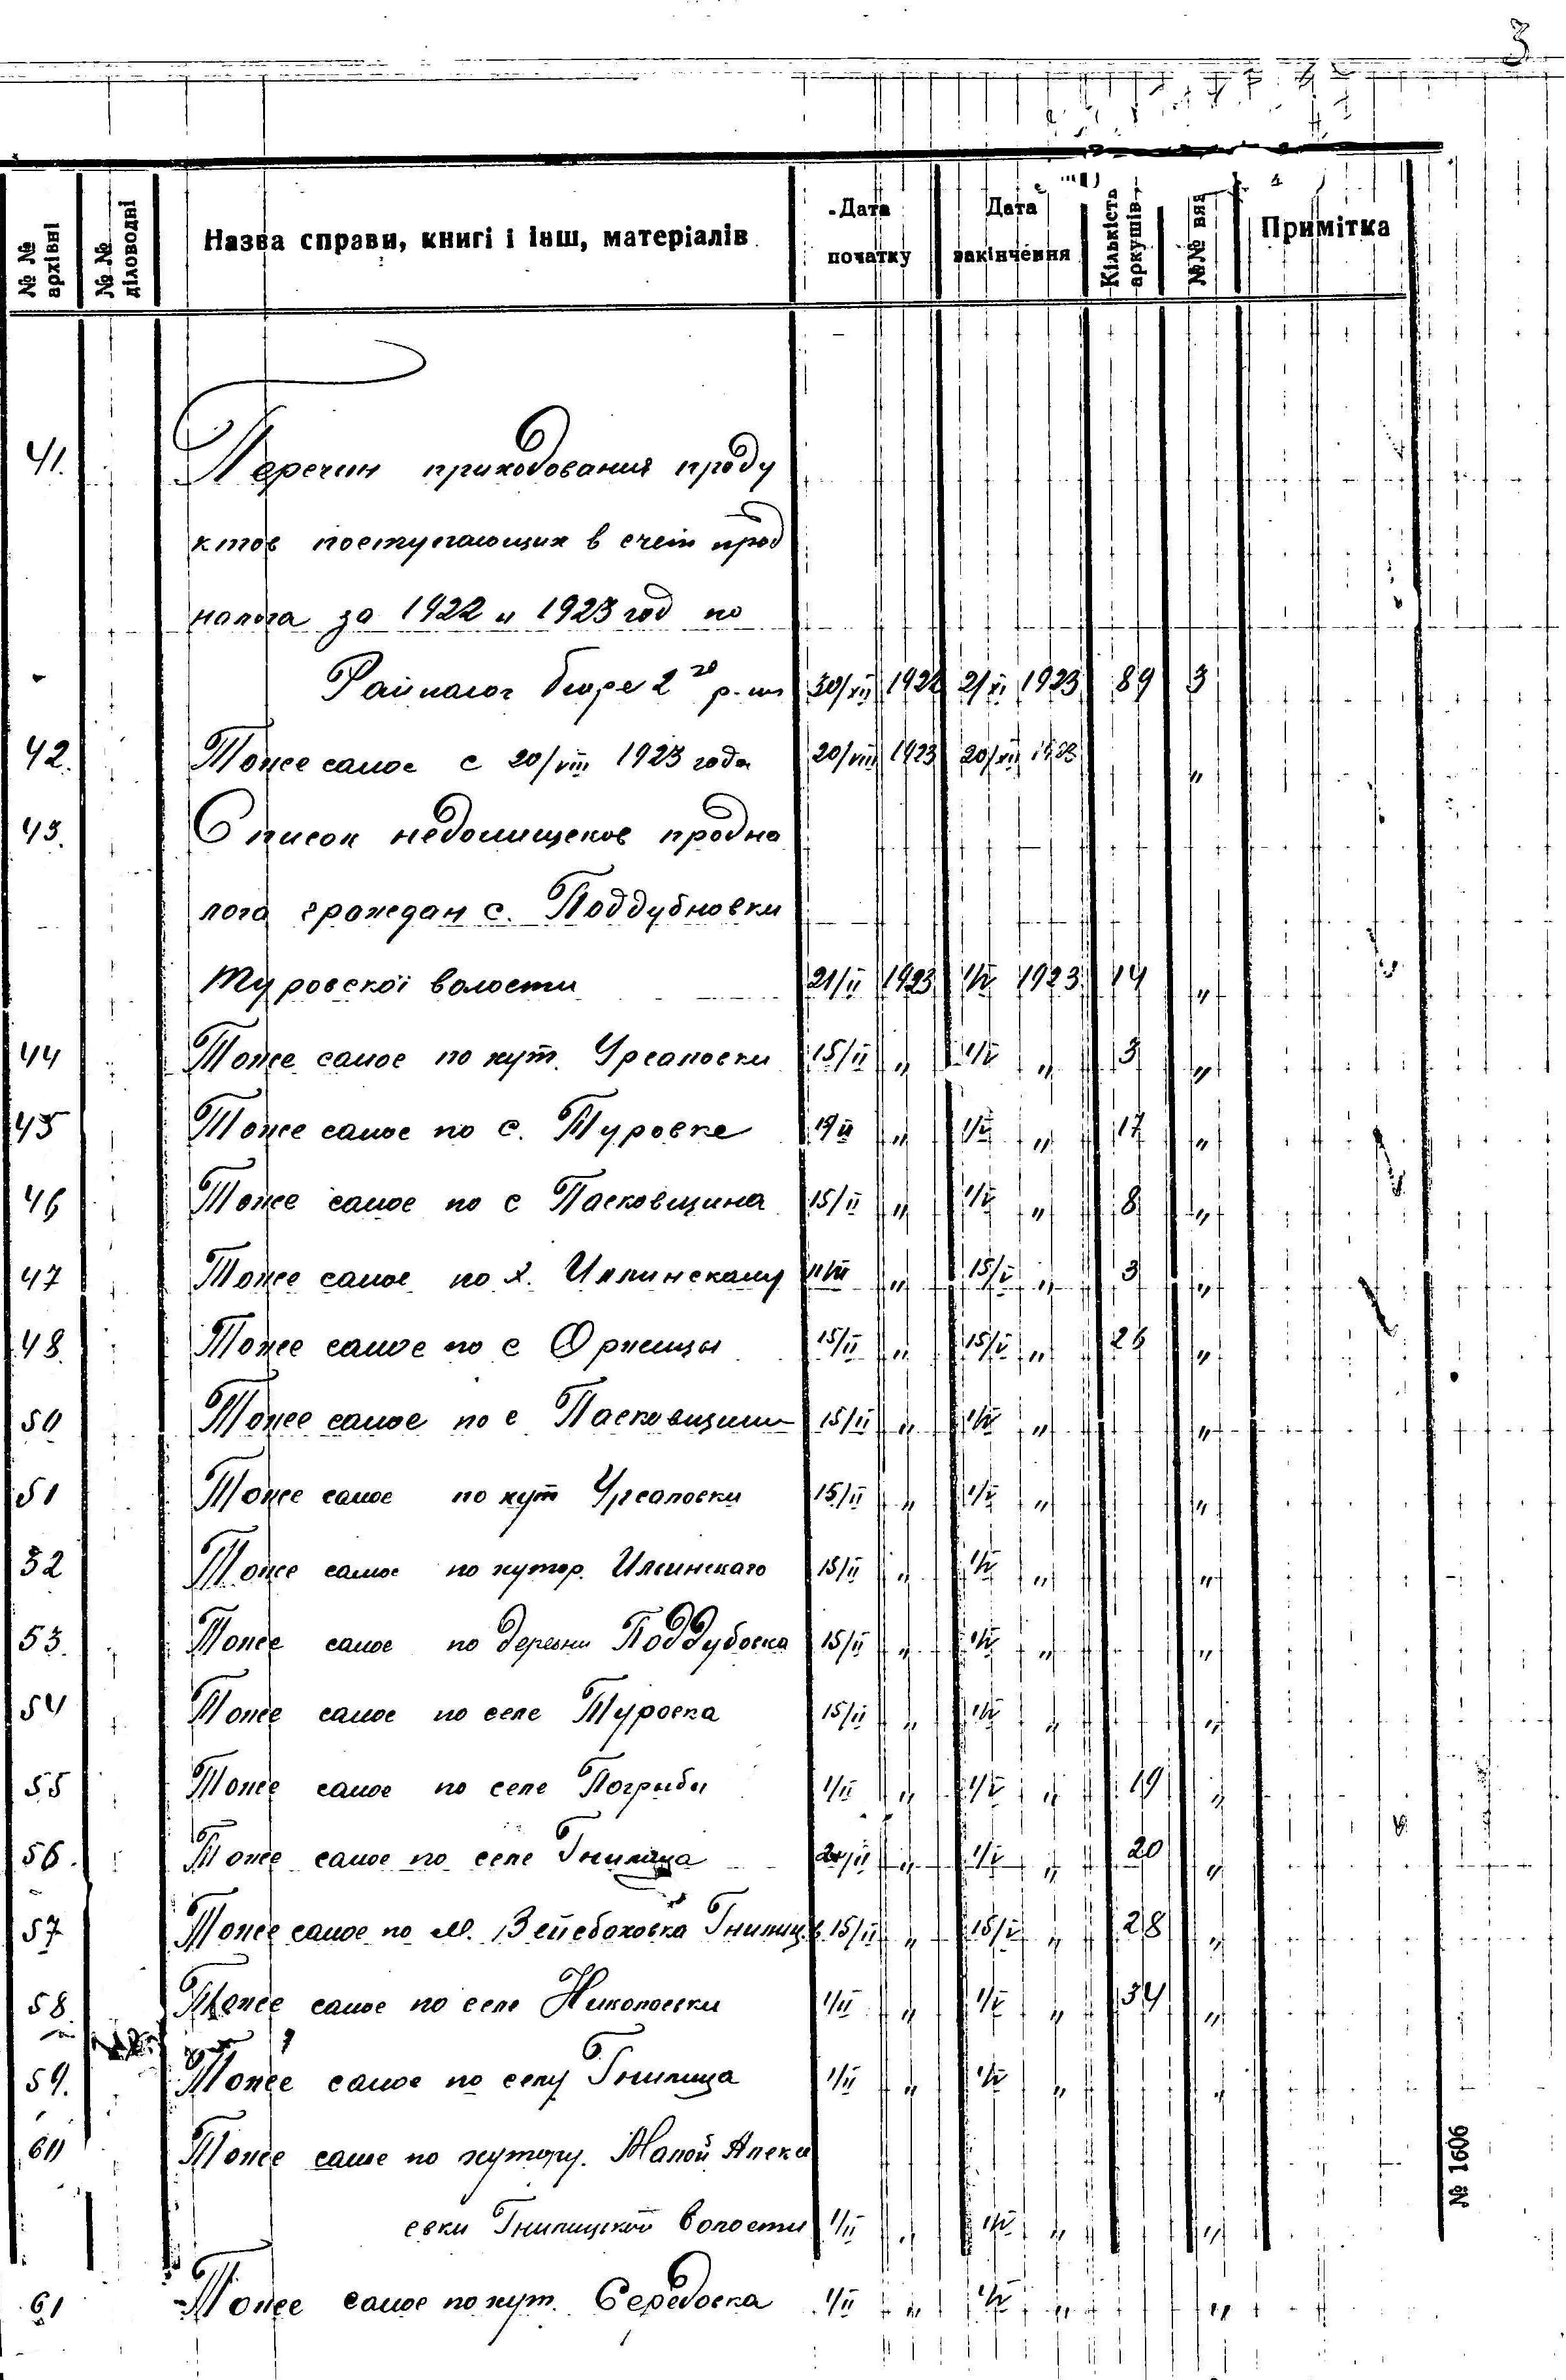 3
№ № архівні № № діловодні Назва справи, книгі і інш, матеріалів Дата початку Дата закінчення Кількість аркушів №№ вяз Примітка
41. Перечин приходования проду
ктов поступающих в счет прод
налога за 1922 и 1923 год по
Райналог бюре 2го р-на 30/VII 1922 21/VI 1923 89 3
42. Тоже самое с 20/VIII 1923 года 20/VIII 1923 20/XII 1923 "
43. Список недоимщеков продна
лога граждан с. Поддубновки
Туровскої волости 21/II 1923 1/V 1923 14 "
44 Тоже самое по хут. Урсаловки 15/II " 1/V " 3 "
45 Тоже самое по с. Туровке 19/II " 1/V " 17 "
46 Тоже самое по с Пасковщина 15/II " 1/V " 8 "
47 Тоже самое по х. Иллинскаму " 15/V " 3 "
48 Тоже самое по с Оржицы 15/II " 15/V " 26 "
50 Тоже самое по с Пасковщини 15/II " 1/V " "
51 Тоже самое по хут Урсаловки 15/II " 1/V " "
52 Тоже самое по хутор. Илсинскаго 15/II " 1/V " "
53. Тоже самое по деревни Поддубовка 15/II " 1/V " "
54 Тоже самое по селе Туровка 15/II " 1/V " "
55 Тоже самое по селе Погрыби 1/II " 1/V " 19 "
56. Тоже самое по селе Гнилица 20/II " 1/V " 20 "
57 Тоже самое по м. Гнилиц. в. 15/II " 15/V " 28 "
58. Тоже самое по селе Николоевки 1/II " 1/V " 34 "
59. Тоже самое по селу Гнилица 1/II " 1/V " "
60 Тоже самое по хутору. Малой Алекс
евки Гнилицкой волости 1/II " 1/V " "
61 Тоже самое по хут. Середовка 1/II " 1/V " "
№ 1606